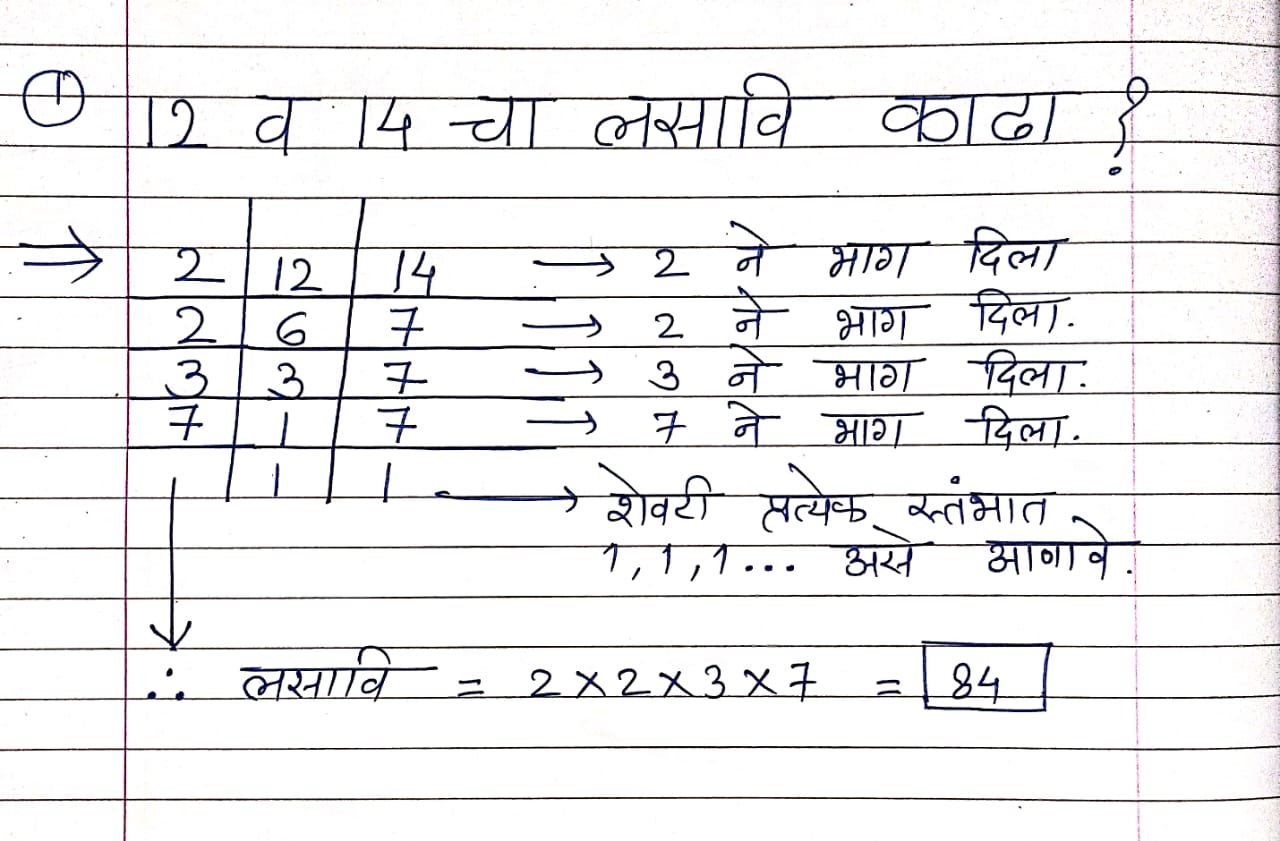 ① 12 व 14 चा लसावि काढा ?
⇒ 2 | 12 | 14 → 2 ने भाग दिला
2 | 6 | 7 → 2 ने भाग दिला.
3 | 3 | 7 → 3 ने भाग दिला.
7 | 1 | 7 → 7 ने भाग दिला.
| 1 | 1 → शेवटी प्रत्येक स्तंभात
1, 1, 1... असे आणावे.
∴ लसावि = 2 × 2 × 3 × 7 = 84